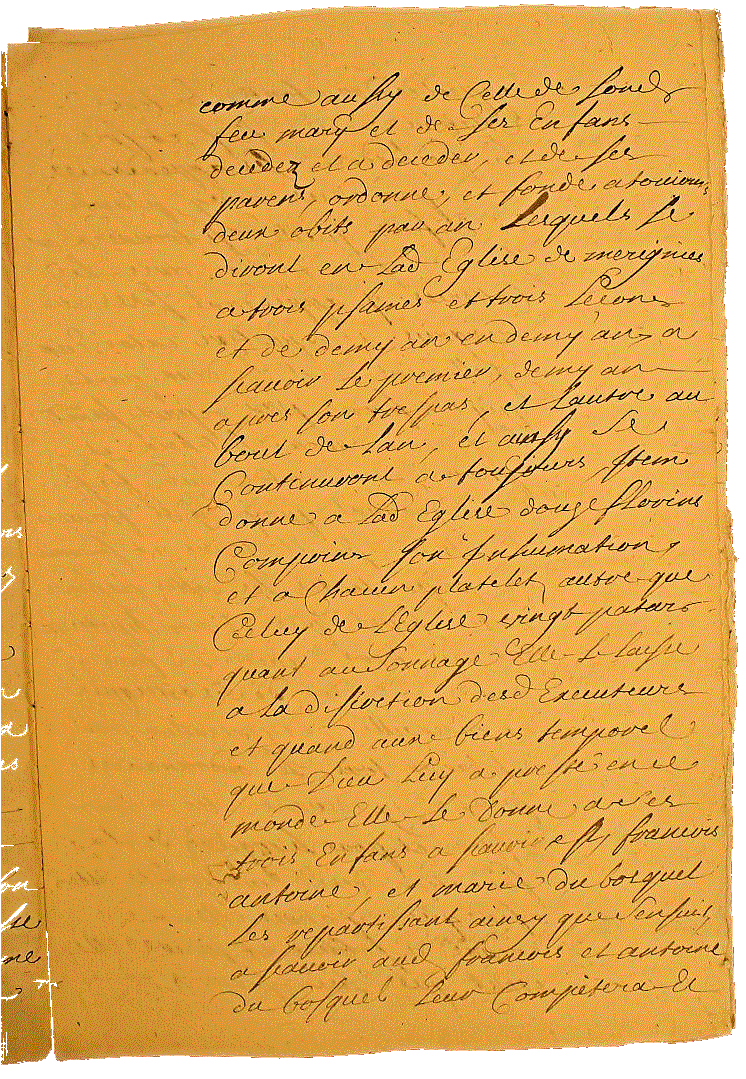 comme aussy de Celle de Sond
feu mary et de Ses Enfans
decedez et a deceder, et de ses
parens, ordonne, et fonde a tousiours
deux obits par an Lesquels Se
diront en Lad Eglise de merignies
a trois psames et trois Lecons
et de demy an en demy an, a
scavoir Le premier, demy an
apres son trespas, et L'autre au
bout de Lan, et ainsy Se
Continuront a tousjours Item
donne a Lad Eglise douze florins
Compris son Inhumation,
et a Chacun platelet autre que
Celuy de L'Eglise vingt patars
quant au Sonnage Elle Le laisse
a La discretion desd Executeurs
et quand aux biens temporel
que Dieu Luy a presté en ce
monde Elle Le Donne a Ses
trois Enfans a scavoir francois
antoine, et marie du bosquel
Les repartissant ainsy que Sensuit,
a scavoir aud francois et antoine
du bosquel Leur Competera Et